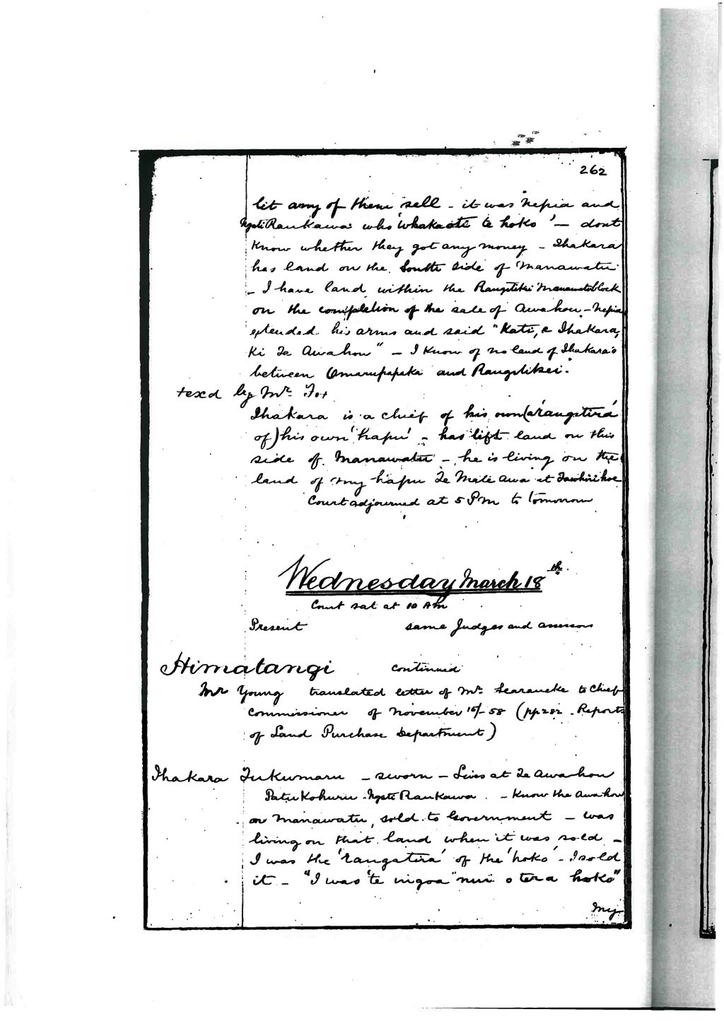 262
let any of them sell - it was Nepia and
Ngati Raukawa who 'whakaoti te hoko' - dont
know whether they got any money - Ihakara
has land on the South side of Manawatu
- I have land within the Rangitiki Manawatu block
on the completion of the sale of Awahou - Nepia
extended his arms and said "Kati, e Ihakara,
ki Te Awahou" - I know of no land of Ihakara's
between Omarupapaka and Rangitikei.
+exd by Mr. Fox
Ihakara is a chief of his own (a 'rangatira'
of) his own 'hapu' - has left land on this
side of Manawatu - he is living on the
land of my hapu Te Mateawa at
Court adjourned at 5 PM to tomorrow
Wednesday March 18th.
Court sat at 10 AM
Present same Judges and assessors
Himatangi continued
Mr Young translated letter of Mr. Searancke to Chief
Commissioner of November 58 (pp 282 . Reports
of Land Purchase Department)
Ihakara Tukumaru - sworn - Lives at Te Awahou
Patu Kohuru - Ngati Raukawa - Know the Awahou
on Manawatu, sold to Government - was
living on that land when it was sold -
I was the 'rangatira' of the 'hoko' - I sold
it - "I was 'te ingoa' nui o tera hoko"
My